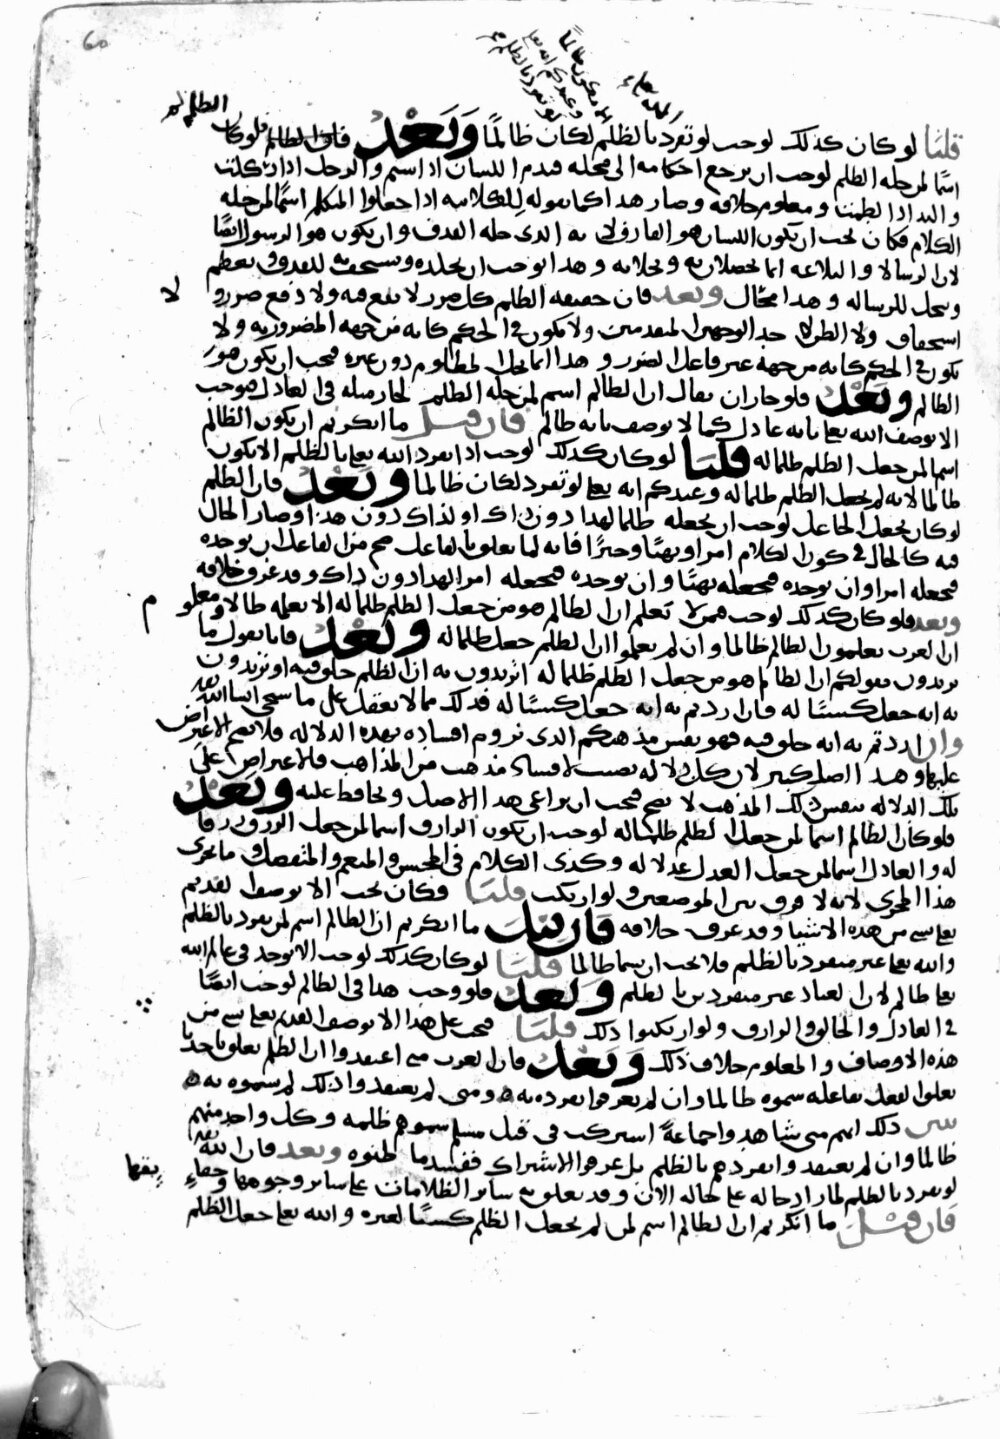 قلنا لو كان كذلك لوجب لو تفرد بالظلم لكان ظالما وبعد فلو كان الظلم
اسما لمن حله الظلم لوجب ان يرجع احكامه الى محله فيذم اللسان اذا شتم والرجل اذا ركلت
واليد اذا لطمت ومعلوم خلافه وصار هذا كما نقوله للكلابية اذا جعلوا المتكلم اسما لمن حله
الكلام فكان يجب ان يكون اللسان هو القاذف لان به الذي حله القذف وان يكون هو الرسول ايضا
لان الرسالة والبلاغة انما يحصلان به ويحلانه وهذا يوجب ان يجلده ويستخف به للقذف ويعظم
ويبجل للرسالة وهذا محال وبعد فان حقيقة الظلم كل ضرر لا نفع فيه ولا دفع ضرر ولا
استحقاق ولا الظن لاحد الوجهين المتقدمين ولا يكون في الحكم كانه من جهة المضرور به ولا
يكون في الحكم كانه من جهة غير فاعل الضرر وهذا انما يحل المظلوم دون غيره فيجب ان يكون هو
الظالم وبعد فلو جاز ان يقال ان الظالم اسم لمن حله الظلم لجاز مثله في العادل فوجب
الا يوصف الله تعالى بانه عادل كما لا يوصف بانه ظالم فان قيل ما انكرتم ان يكون الظالم
اسما لمن جعل الظلم ظلما له قلنا لو كان كذلك لوجب اذا تفرد الله تعالى بالظلم الا يكون
ظالما لانه لم يجعل الظلم ظلما له وعندكم انه تعالى لو تفرد لكان ظالما وبعد فان الظلم
لو كان بجعل الجاعل لوجب ان يجعله ظلما لهذا دون ذاك او لذاك دون هذا وصار الحال
فيه كالحال في كون الكلام امرا ونهيا وخبرا فانه لما تعلق بالفاعل صح من الفاعل ان يوجده
فيجعله امرا وان يوجده فيجعله نهيا وان يوجده فيجعله امرا لهذا دون ذاك وقد عرف خلافه
وبعد فلو كان كذلك لوجب فيمن لا يعلم ان الظالم هو من جعل الظلم ظلما له الا يعلمه ظالما ومعلوم
ان العرب يعلمون الظالم ظالما وان لم يعلموا ان الظلم جعل ظلما له وبعد فانا نقول ما
تريدون بقولكم ان الظالم هو من جعل الظلم ظلما له اتريدون به ان الظلم خلق فيه او تريدون
به انه جعل كسبا له فان اردتم به انه جعل كسبا له فذلك مما لا يعقل على ما سيجي ان شاء الله تعالى
وان اردتم به انه خلق فيه فهو نفس مذهبكم الذي نروم افساده بهذه الدلالة فلا يصح الاعتراض
عليها وهذا اصل كبير لان كل دلالة نصبت لافساد مذهب من المذاهب فالاعتراض على
تلك الدلالة بنفس ذلك المذهب لا يصح فيجب ان يراعى هذا الاصل ويحافظ عليه وبعد
فلو كان الظالم اسما لمن جعل الظلم ظلما له لوجب ان يكون الرازق اسما لمن جعل الرزق رزقا
له والعادل اسما لمن جعل العدل عدلا له وكذى الكلام في المحسن والمنعم والمتفضل وما يجري
هذا المجرى لانه لا فرق بين الموضعين ولو ارتكب قلنا فكان يجب الا يوصف القديم
تعالى بشي من هذه الاشياء وقد عرف خلافه فان قيل ما انكرتم ان الظالم اسم لمن تفرد بالظلم
والله تعالى غير متفرد بالظلم فلا يجب ان يسما ظالما قلنا لو كان كذلك لوجب الا يوجد في عالم الله
تعالى ظالم لان العباد غير متفردين بالظلم وبعد فلو وجب هذا في الظالم لوجب ايضا
في العادل والخالق والرازق ولو ارتكبوا ذلك قلنا فيجب على هذا الا يوصف القديم تعالى بشي من
هذه الاوصاف والمعلوم خلاف ذلك وبعد فان العرب متى اعتقدوا ان الظلم تعلق باحدنا
تعلق الفعل بفاعله سموه ظالما وان لم يعرفوا تفرده به ومتى لم يعتقدوا ذلك لم يسموه به
يبين ذلك انهم متى شاهدوا جماعة اشتركت في قتل مسلم سموهم ظلمة وكل واحد منهم
ظالما وان لم يعتقدوا تفردهم بالظلم بل عرفوا الاشتراك ففسد ما ظنوه وبعد فان الله تعالى
لو تفرد بالظلم لما زاد حاله على حاله الان وقد تعلق به سائر الظلامات على سائر وجوهها
فان قيل ما انكرتم ان الظالم اسم لمن لم يجعل الظلم كسبا لغيره والله تعالى جعل الظلم